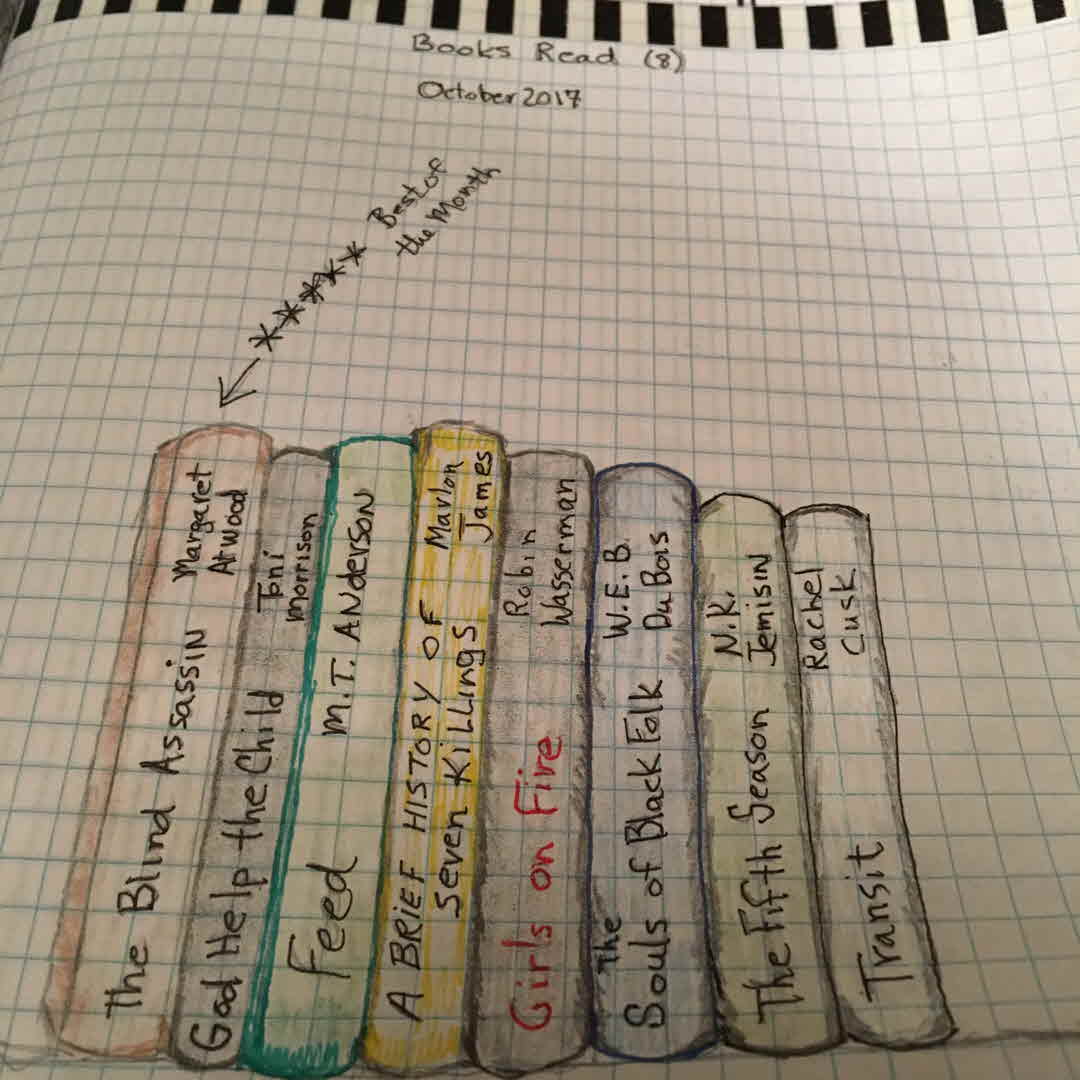 Books Read (8)
October 2017
Best of
the Month
The Blind Assassin
Margaret
Atwood
God Help the Child
Toni
Morrison
Feed
M.T. ANDERSON
A BRIEF HISTORY OF
Seven Killings
Marlon
James
Girls on Fire
Robin
Wasserman
The
Souls of Black Folk
W.E.B.
DuBois
The Fifth Season
N.K.
Jemisin
Transit
Rachel
Cusk